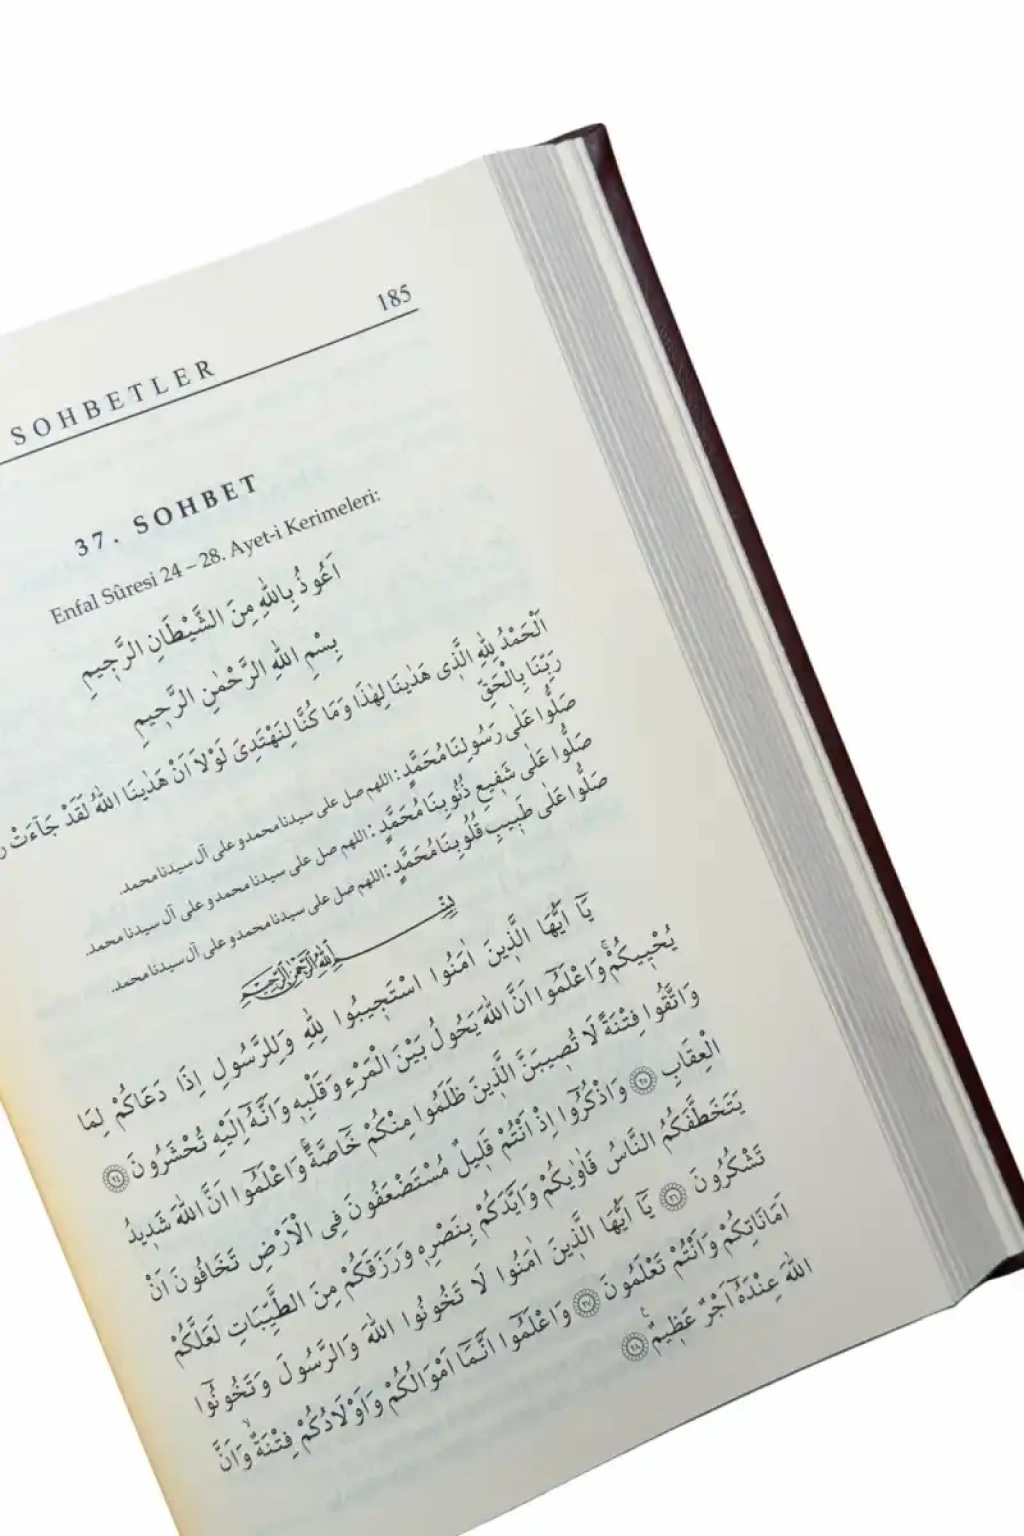 185
SOHBETLER
37. SOHBET
Enfal Sûresi 24 – 28. Ayet-i Kerimeleri:
اَعُوذُ بِاللّٰهِ مِنَ الشَّيْطَانِ الرَّجٖيمِ
بِسْمِ اللّٰهِ الرَّحْمٰنِ الرَّحٖيمِ
اَلْحَمْدُ لِلّٰهِ الَّذٖى هَدٰينَا لِهٰذَا وَمَا كُنَّا لِنَهْتَدِىَ لَوْلَا اَنْ هَدٰينَا اللّٰهُ لَقَدْ جَٓاءَتْ
رَبِّنَا بِالْحَقِّ
صَلُّوا عَلٰى رَسُولِنَا مُحَمَّدٍ : اللهم صل على سيدنا محمد و على آل سيدنا محمد.
صَلُّوا عَلٰى شَفٖيعِ ذُنُوبِنَا مُحَمَّدٍ : اللهم صل على سيدنا محمد و على آل سيدنا محمد.
صَلُّوا عَلٰى طَبٖيبِ قُلُوبِنَا مُحَمَّدٍ : اللهم صل على سيدنا محمد و على آل سيدنا محمد.
بِسْمِ اللّٰهِ الرَّحْمٰنِ الرَّحٖيمِ
يَٓا اَيُّهَا الَّذٖينَ اٰمَنُوا اسْتَجٖيبُوا لِلّٰهِ وَلِلرَّسُولِ اِذَا دَعَاكُمْ لِمَا
يُحْيٖيكُمْۚ وَاعْلَمُٓوا اَنَّ اللّٰهَ يَحُولُ بَيْنَ الْمَرْءِ وَقَلْبِهٖ وَاَنَّهُٓ اِلَيْهِ تُحْشَرُونَ ﴿٢٤﴾
وَاتَّقُوا فِتْنَةً لَا تُصٖيبَنَّ الَّذٖينَ ظَلَمُوا مِنْكُمْ خَٓاصَّةًۚ وَاعْلَمُٓوا اَنَّ اللّٰهَ شَدٖيدُ
الْعِقَابِ ﴿٢٥﴾ وَاذْكُرُٓوا اِذْ اَنْتُمْ قَلٖيلٌ مُسْتَضْعَفُونَ فِى الْاَرْضِ تَخَافُونَ اَنْ
يَتَخَطَّفَكُمُ النَّاسُ فَاٰوٰيكُمْ وَاَيَّدَكُمْ بِنَصْرِهٖ وَرَزَقَكُمْ مِنَ الطَّيِّبَاتِ لَعَلَّكُمْ
تَشْكُرُونَ ﴿٢٦﴾ يَٓا اَيُّهَا الَّذٖينَ اٰمَنُوا لَا تَخُونُوا اللّٰهَ وَالرَّسُولَ وَتَخُونُٓوا
اَمَانَاتِكُمْ وَاَنْتُمْ تَعْلَمُونَ ﴿٢٧﴾ وَاعْلَمُٓوا اَنَّمَٓا اَمْوَالُكُمْ وَاَوْلَادُكُمْ فِتْنَةٌۙ وَاَنَّ
اللّٰهَ عِنْدَهُٓ اَجْرٌ عَظٖيمٌ ﴿٢٨﴾